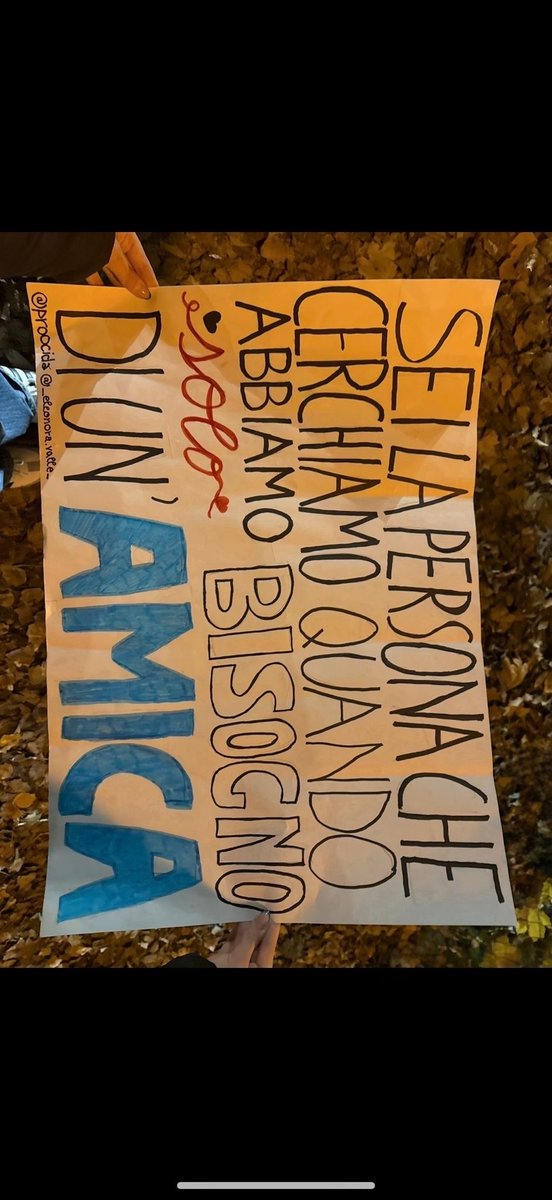 SEI LA PERSONA CHE
CERCHIAMO QUANDO
ABBIAMO BISOGNO
solo
DI UN' AMICA
@_eleonora.valle_